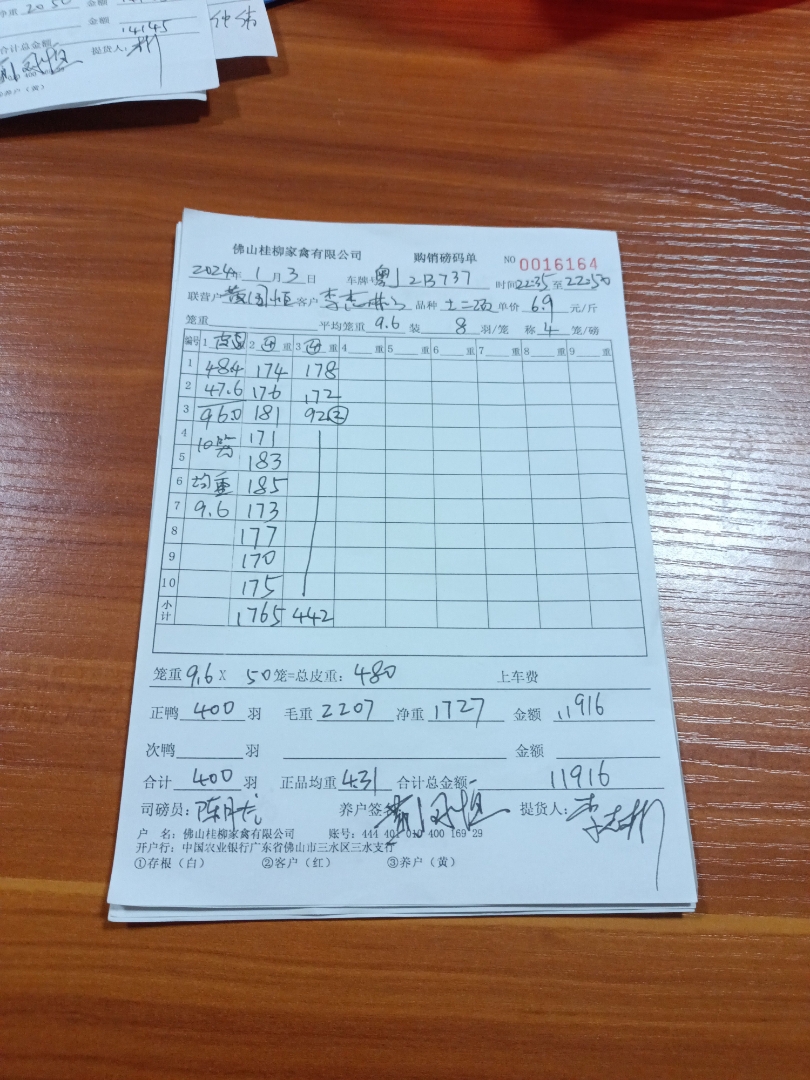 净重 2050 金额
金额 14145
合计总金额 提货人：
佛山桂柳家禽有限公司 购销磅码单 NO 0016164
2024年 1月 3日 车牌 粤J 2B737 时间 22:35 至 22:50
联营户 客户 品种 单价 6.9 元/斤
笼重 平均笼重 9.6 装 8 羽/笼 称 4 笼/磅
编号 1 重 2 ④ 重 3 ④ 重 4 重 5 重 6 重 7 重 8 重 9 重
1 48.4 174 178
2 47.6 176 172
3 96.0 181 92②
4 10笼 171
5 183
6 均重 185
7 9.6 173
8 177
9 170
10 175
小计 1765 442
笼重 9.6 X 50 笼=总皮重： 480 上车费
正鸭 400 羽 毛重 2207 净重 1727 金额 11916
次鸭 羽 金额
合计 400 羽 正品均重 4.31 合计总金额 11916
司磅员： 养户签 提货人：
户 名：佛山桂柳家禽有限公司 账号：444 401 010 400 169 29
开户行：中国农业银行广东省佛山市三水区三水支行
①存根（白） ②客户（红） ③养户（黄）